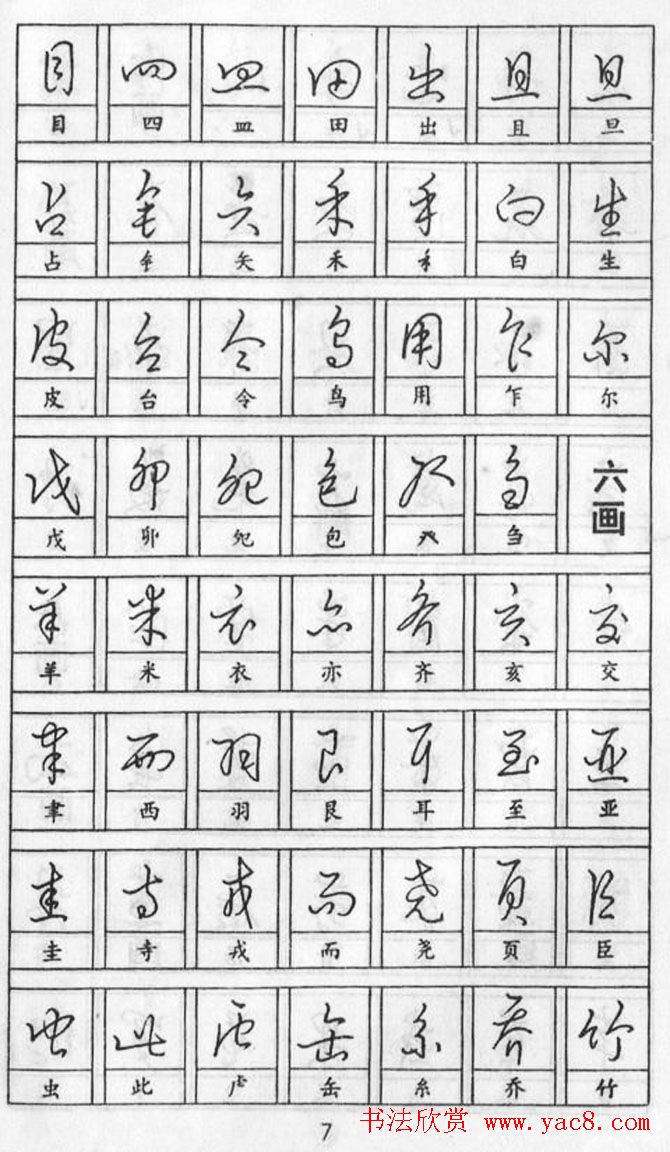 目 四 皿 田 出 且 旦
目 四 皿 田 出 且 旦
占 矢 禾 白 生
占 矢 禾 白 生
皮 台 令 鸟 用 乍 尔
皮 台 令 鸟 用 乍 尔
戊 卯 包 癶 刍 六画
戊 卯 包 癶 刍
羊 米 衣 亦 齐 亥 交
羊 米 衣 亦 齐 亥 交
聿 西 羽 艮 耳 至 亚
聿 西 羽 艮 耳 至 亚
圭 寺 戎 而 尧 页 臣
圭 寺 戎 而 尧 页 臣
虫 此 虍 缶 糸 乔 竹
虫 此 虍 缶 糸 乔 竹
书法欣赏 www.yac8.com
7